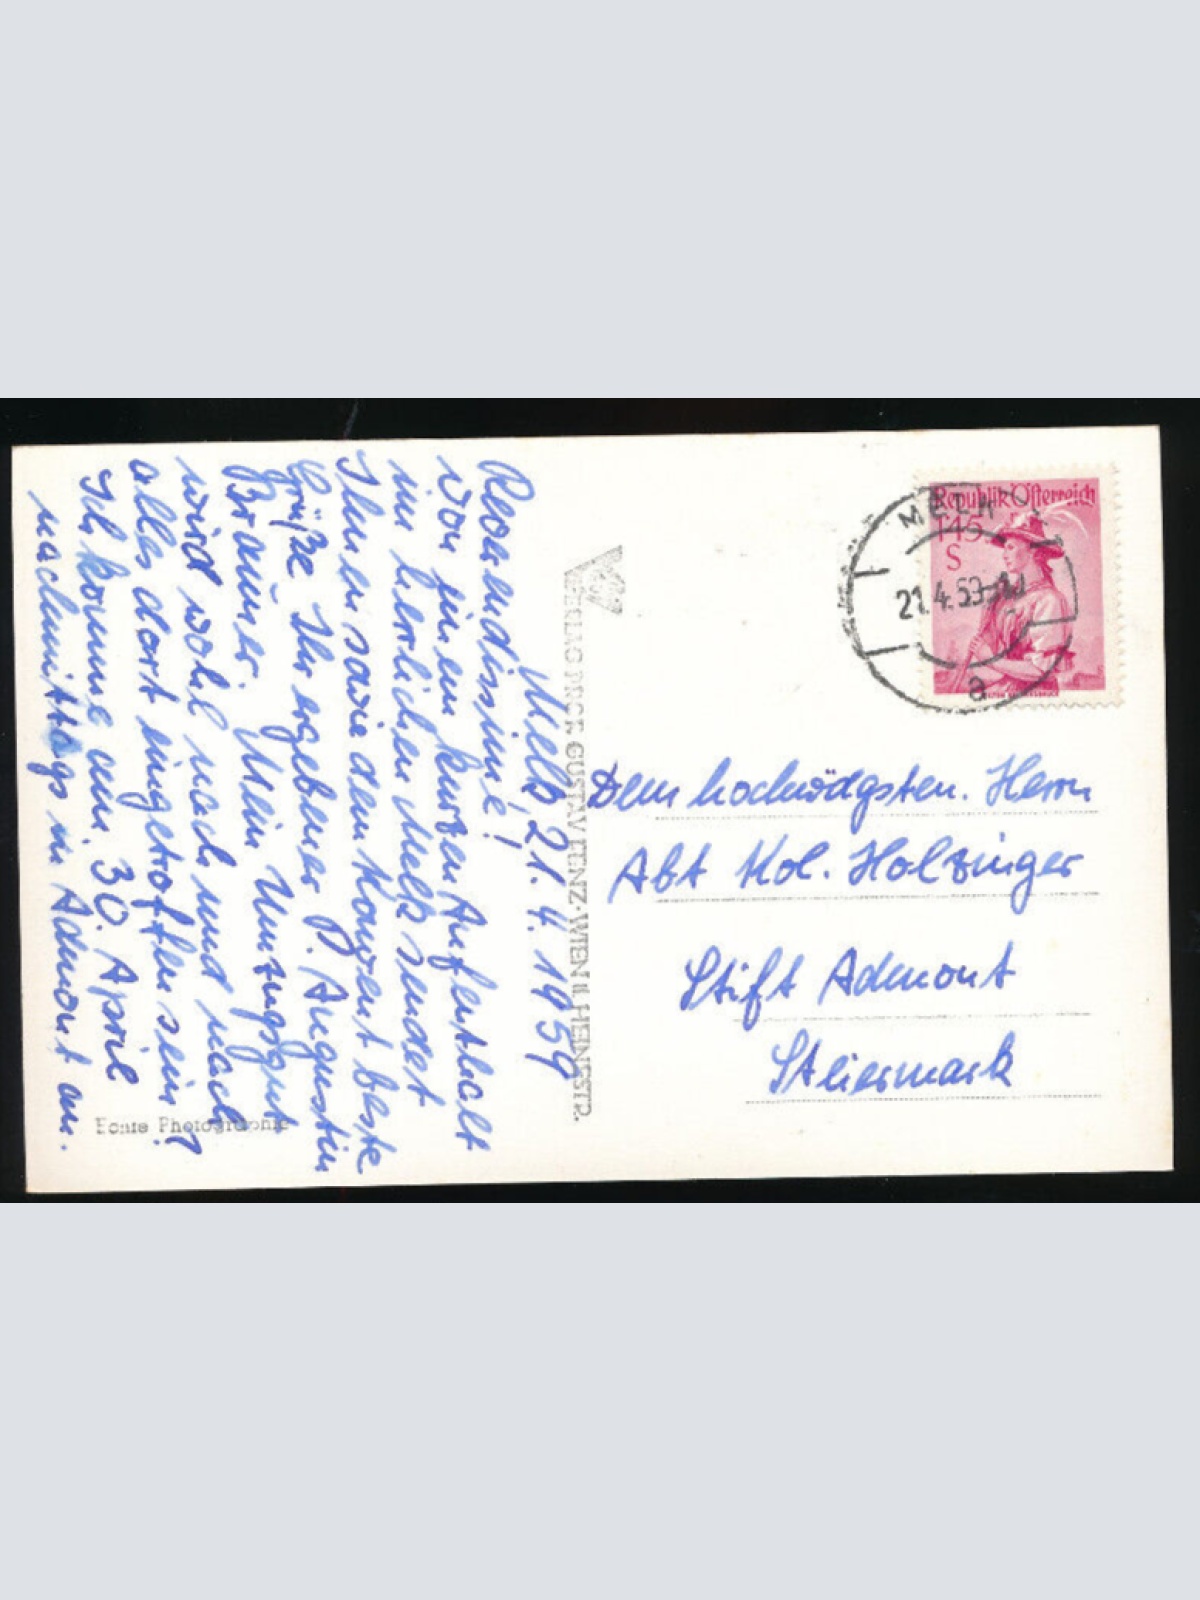 Melk, 21.4.1959
Reverendissime!
Von einem kurzen Aufenthalt
im herrlichen Melk sendet
Ihnen sowie dem Konvent beste
Grüße Ihr ergebener P. Augustin
Bräuer. Mein Umzugsgut
wird wohl nach und nach
alles dort eingetroffen sein?
Ich komme am 30. April
nachmittags in Admont an.
Echte Photographie
VERLAG PROF. GUSTAV LENZ·WIEN II, HEINESTR.
Republik Österreich
1·45
S
MELK
21.4.59
a
Dem hochwdgsten. Herrn
Abt Kol. Holzinger
Stift Admont
Steiermark